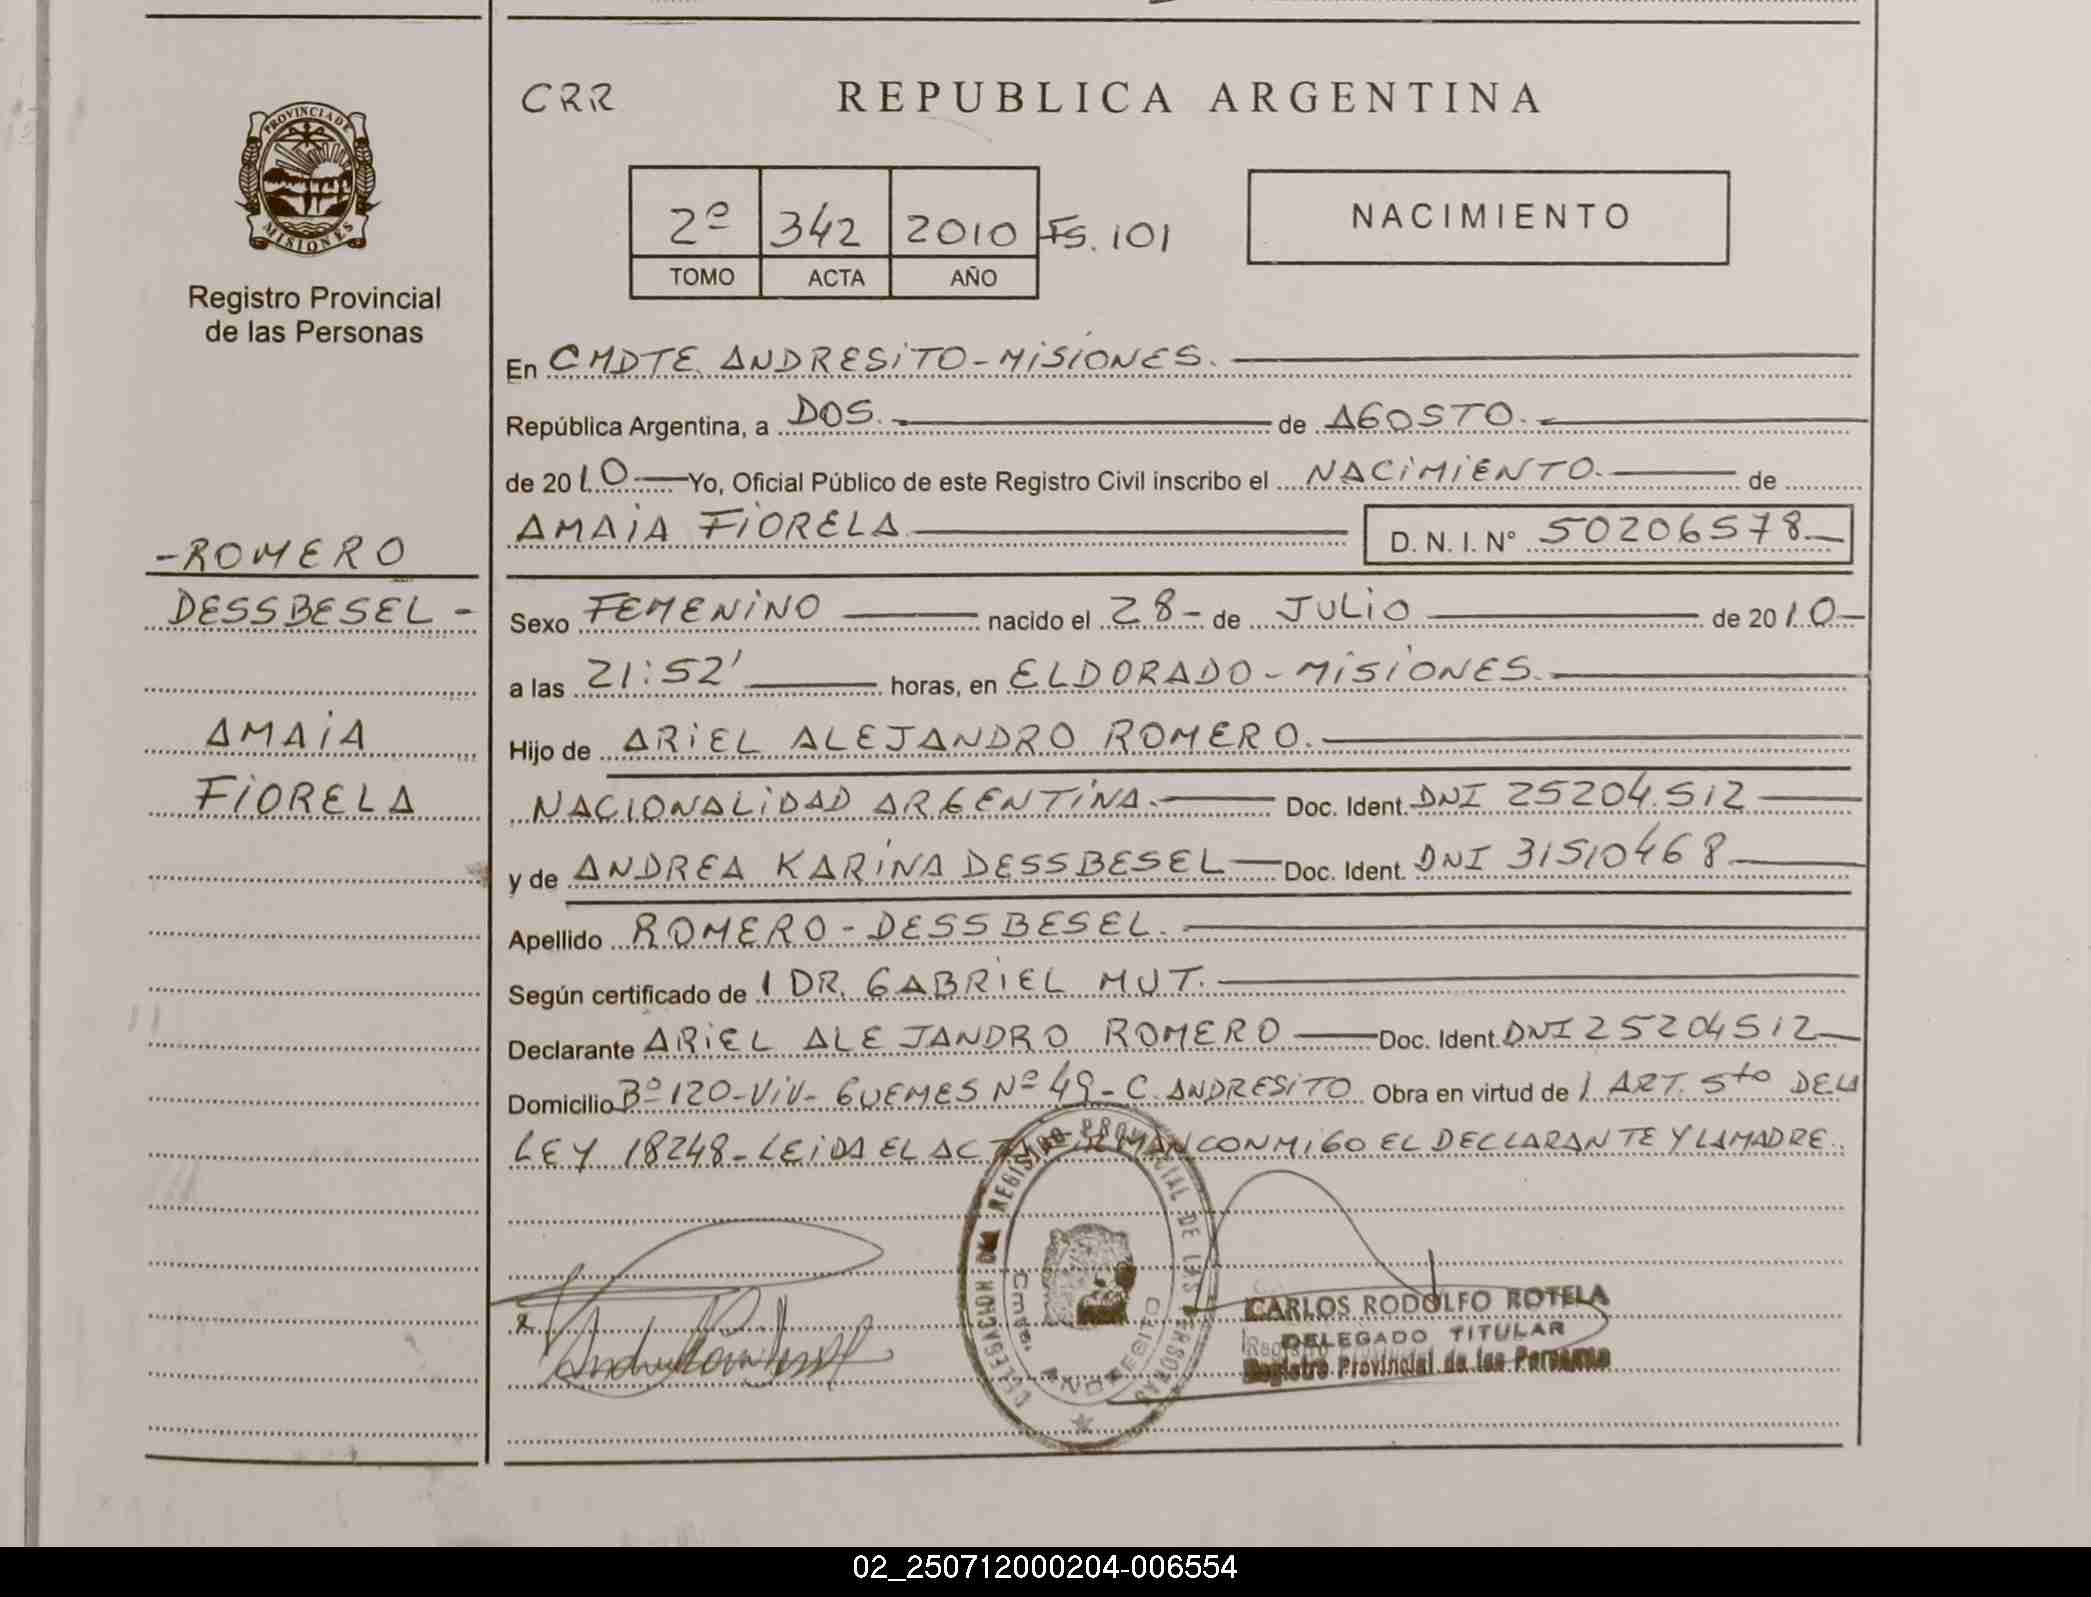 CRR
REPUBLICA ARGENTINA
PROVINCIA DE
MISIONES
Registro Provincial
de las Personas
2º 342 2010 Fs. 101
TOMO ACTA AÑO
NACIMIENTO
En CMDTE. ANDRESITO - MISIONES.
República Argentina, a DOS. de AGOSTO.
de 2010 Yo, Oficial Público de este Registro Civil inscribo el NACIMIENTO. de
AMAIA FIORELA D. N. I. Nº 50206578
-ROMERO
DESSBESEL-
AMAIA
FIORELA
Sexo FEMENINO nacido el 28 - de JULIO de 2010-
a las 21:52' horas, en ELDORADO - MISIONES.
Hijo de ARIEL ALEJANDRO ROMERO.
NACIONALIDAD ARGENTINA. Doc. Ident. DNI 25204.512
y de ANDREA KARINA DESSBESEL Doc. Ident. DNI 31510468
Apellido ROMERO - DESSBESEL.
Según certificado de 1 DR. GABRIEL MUT.
Declarante ARIEL ALEJANDRO ROMERO Doc. Ident. DNI 25204512
Domicilio Bº 120-VIV- GUEMES Nº 49 - C. ANDRESITO Obra en virtud de 1 ART. 5to DE LA
LEY 18248 - LEIDA EL ACTA FIRMAN CONMIGO EL DECLARANTE Y LA MADRE.
DELEGACION DEL REGISTRO PROVINCIAL DE LAS PERSONAS
Cmdte. ANDRESITO
CARLOS RODOLFO ROTELA
DELEGADO TITULAR
Registro Provincial de las Personas
02_250712000204-006554